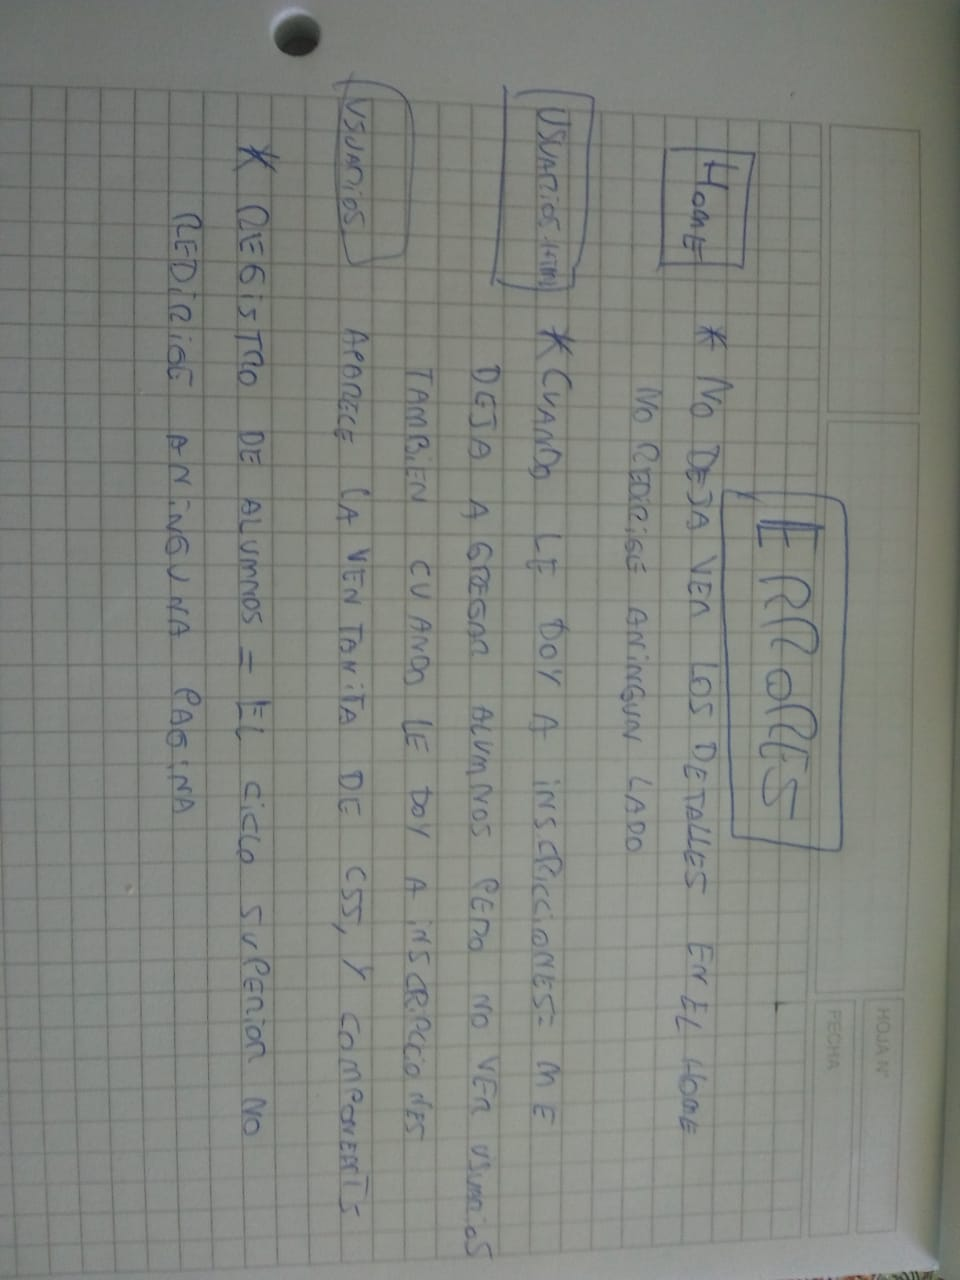 HOJA N°
FECHA
ERRORES
HOME * NO DEJA VER LOS DETALLES EN EL HOME
NO REDIRIGE ANINGUN LADO
USUARIOS.HTML * CUANDO LE DOY A INSCRICCIONES= ME
DEJA AGREGAR ALUMNOS PERO NO VER USUARIOS
TAMBIEN CUANDO LE DOY A INSCRIPCCIONES
USUARIOS APARECE LA VENTANITA DE CSS, Y COMPONENTS
* REGISTRO DE ALUMNOS = EL CICLO SUPERIOR NO
REDIRIGE ANINGUNA PAGINA